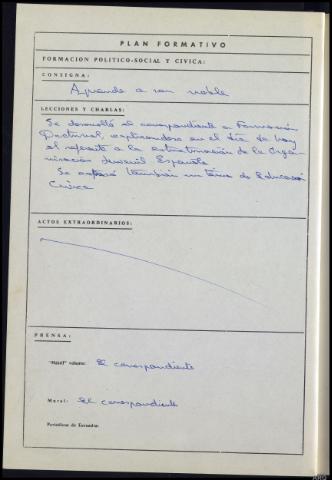 PLAN FORMATIVO
FORMACION POLITICO-SOCIAL Y CIVICA:
CONSIGNA:
Aprende a ser noble
LECCIONES Y CHARLAS:
Se desarrolló el correspondiente a Formación
Doctrinal, explicandose en el día de hoy
el referente a la estructuración de la Orga-
nización Juvenil Española
Se explicó también un tema de Educación
Cívica
ACTOS EXTRAORDINARIOS:
PRENSA:
"Mástil" volante: El correspondiente
Mural: El correspondiente
Periodismo de Escuadra: